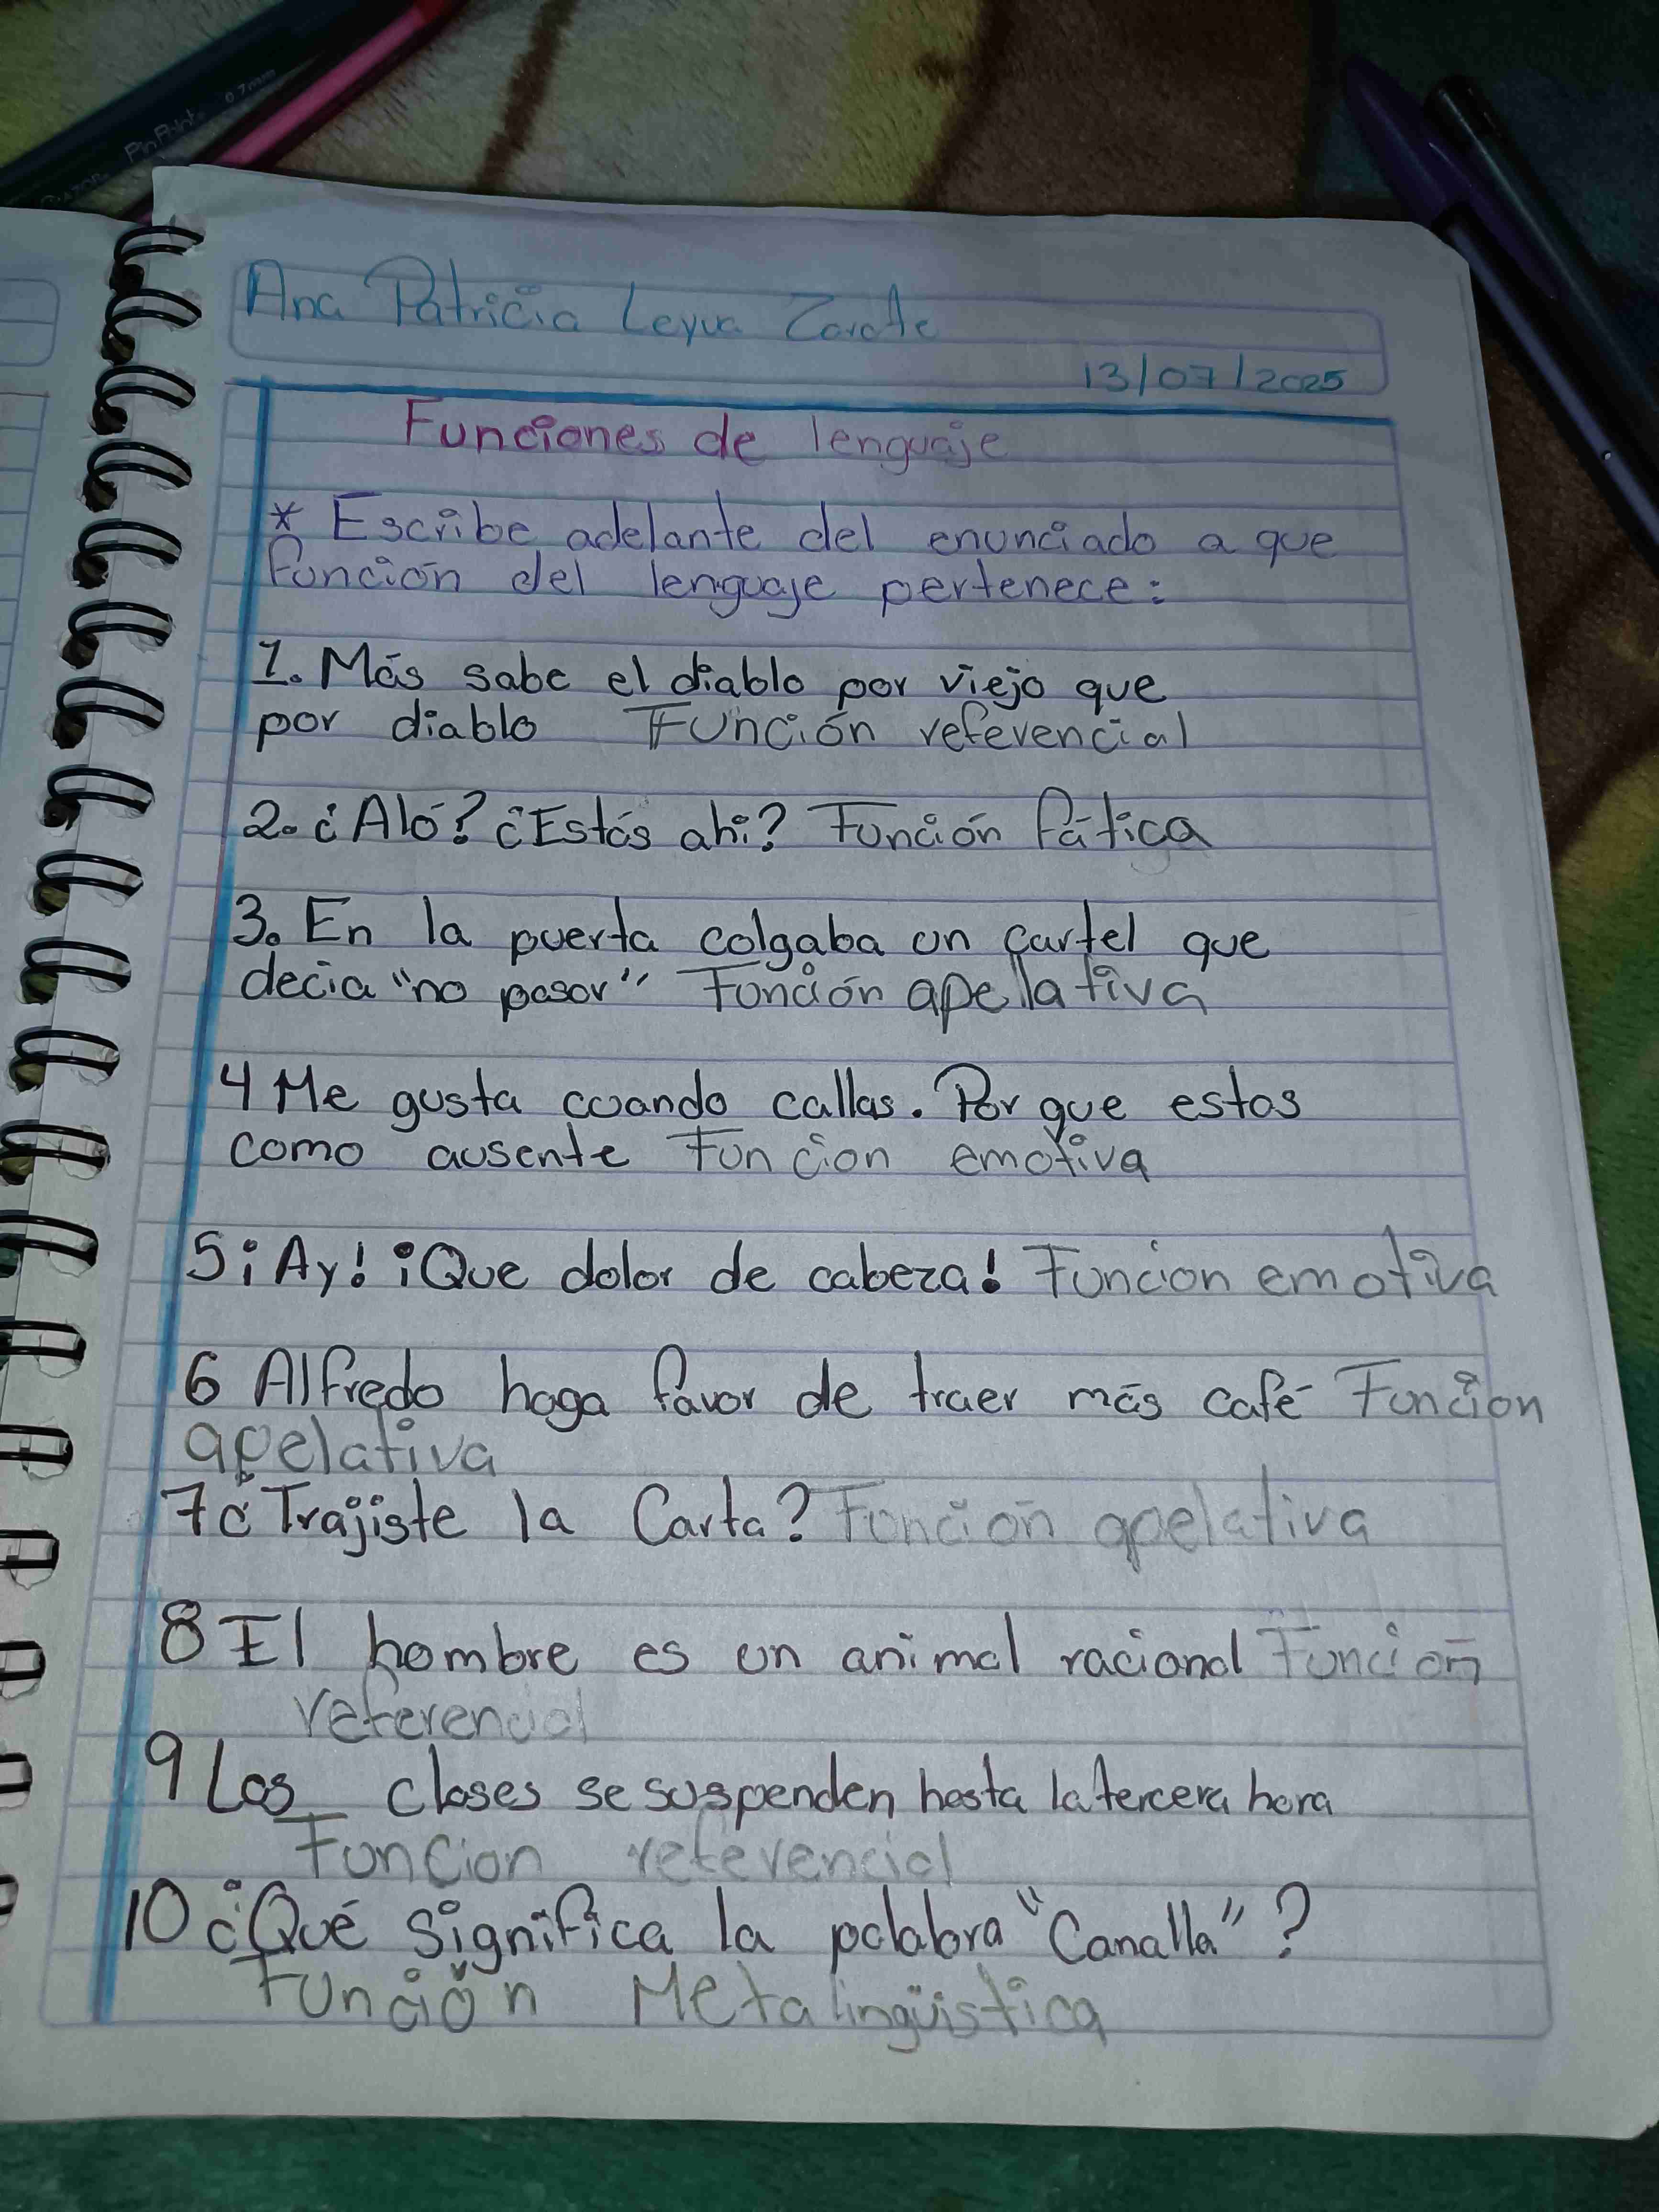 PinPoint 0.7mm
Ana Patricia Leyva Zarate
13/07/2025
Funciones de lenguaje
* Escribe adelante del enunciado a que
función del lenguaje pertenece:
1. Más sabe el diablo por viejo que
por diablo Función referencial
2. ¿Aló? ¿Estás ahi? Función fática
3. En la puerta colgaba un cartel que
decia "no pasar" Función apelativa
4 Me gusta cuando callas. Por que estas
como ausente Funcion emotiva
5 ¡Ay! ¡Que dolor de cabeza! Funcion emotiva
6 Alfredo haga favor de traer más café Función
apelativa
7 ¿Trajiste la Carta? Función apelativa
8 El hombre es un animal racional Función
referencial
9 Las clases se suspenden hasta la tercera hora
Funcion referencial
10 ¿Qué significa la palabra "Canalla"?
Función Metalingüistica